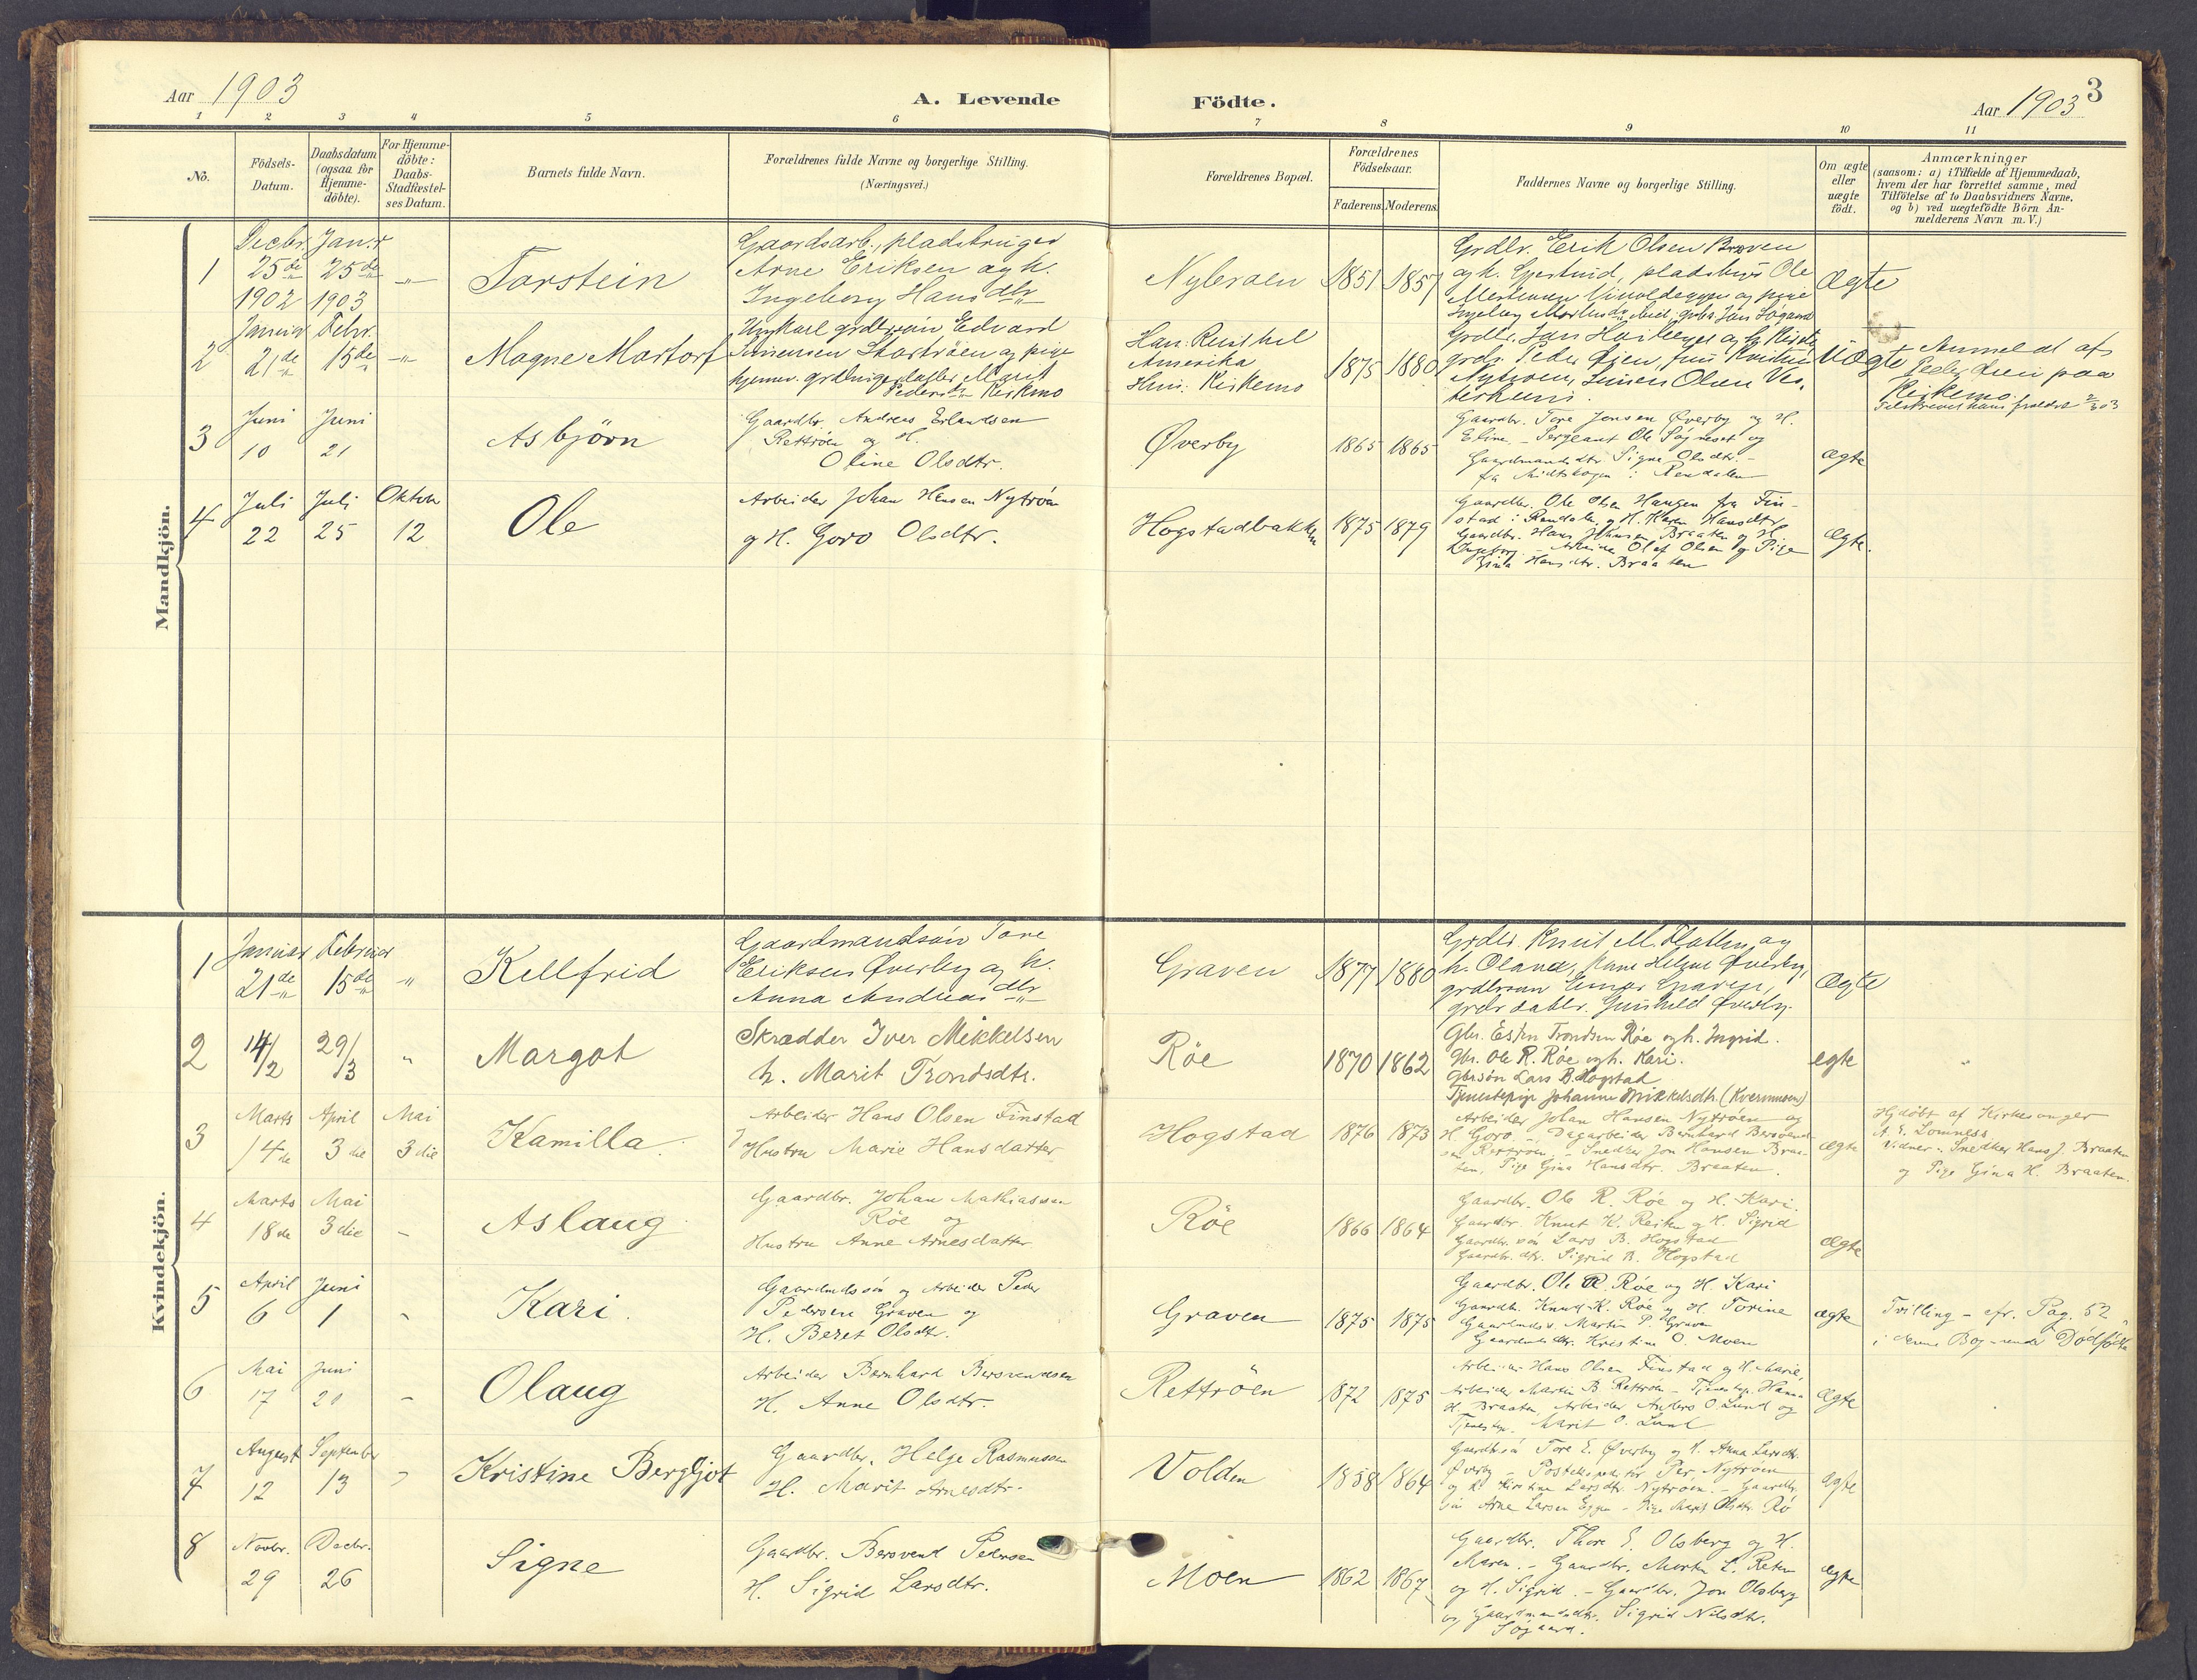 Aar 1903
A. Levende Födte.
Aar 1903
3
1 2 3 4 5 6 7 8 9 10 11
No.
Födsels-Datum.
Daabsdatum (ogsaa for Hjemme-döbte).
For Hjemme-döbte: Daabs-Stadfæstel-ses Datum.
Barnets fulde Navn.
Forældrenes fulde Navne og borgerlige Stilling.
(Næringsvei.)
Forældrenes Bopæl.
Forældrenes Födselsaar.
Faderens. Moderens.
Faddernes Navne og borgerlige Stilling.
Om ægte eller uægte födt.
Anmærkninger
(saasom: a) i Tilfælde af Hjemmedaab,
hvem der har forrettet samme, med
Tilföielse af to Daabsvidners Navne,
og b) ved uægtefödte Börn An-
melderens Navn m. V.)
Mandkjön.
1
Decbr. 25de 1902
Janr 25de 1903
Torstein
Gaardsarb., pladsbruger
Arne Eriksen og h.
Ingeborg Hansdtr
1851 1857
Grdbr. Erik Olsen
Ægte
2
Januar 21de
Febr. 15de
Magne Martorf
Ungkarl grdbrsøn Edvard
og pige
Marit
Pedersdtr Kirkemo
Han:
Amerika
Hun: Kirkemo
1875 1880
Uægte
Anmeldt af
Peder Øien paa
Kirkemo.
3
Juni 10
Juni 21
Asbjörn
Gaardbr. Andreas Erlandsen
Rettröen og H.
Oline Olsdtr.
Øverby
1865 1865
Gaardbr. Tore Jonsen Øverby og H.
Eline. - Sergeant Ole
Gaardmandsdtr. Signe Olsdtr. -
i Rendalen
ægte
4
Juli 22
Juli 25
Oktbr 12
Ole
Arbeider Johan Hansen Nytröen
og H. Goro Olsdtr.
Hogstadbakken
1875 1879
Gaardbr. Ole Olsen Haugen fra Fin-
stad i Rendalen og H. Karen Hansdtr.
Gaardbr. Hans Johnsen Braaten og H.
Ingeborg. - Arbeider Olaf Olsen og Pige
Gina Hansdtr. Braaten
Ægte.
Kvindekjön.
1
Januar 21de
Februar 15de
Kellfrid
Gaardmandsön Tore
Eriksen Øverby og h.
Anna Andreasdtr
Graven
1877 1880
Grdbr. Knut M.
h. Oland,
grdbrsøn Einar Graven,
grdbrdatter Gunhild Øverby.
Ægte
2
14/2
29/3
Margot
Skrædder Iver Mikkelsen
h. Marit Trondsdtr.
Röe
1870 1862
Gbr. Esten Trondsen Röe og h. Ingrid.
Gbr. Ole R. Röe og h. Kari.
Gbrsön Lars B. Hogstad
Tjenestepige Johanne Mikkelsdtr. (Kvernmoen)
egte
3
Marts 14de
April 3die
Mai 3die
Kamilla.
Arbeider Hans Olsen Finstad
Hustru Marie Hansdatter
Hogstad
1876 1873
Arbeider Johan Hansen Nytröen og
H. Goro. - Dagarbeider Bernhard Bersvend-
sen Rettröen, - Snedker Jon Hansen Braa-
ten, Pige Gina Hansdtr. Braaten.
ægte
Hjdöbt af Kirkesanger
A. E. Lomness
Vidner: Snedker Hans J. Braaten
og Pige Gina H. Braaten.
4
Marts 18de
Mai 3die
Aslaug
Gaardbr. Johan Mathiassen
Röe og
Hustru Anne Arnesdatter
Röe
1866 1864
Gaardbr. Ole R. Röe og H. Kari.
Gaardbr. Knut K. Reiten og H. Sigrid
Gaardbr. sön Lars B. Hogstad
Gaardbr. dtr. Sigrid B. Hogstad
ægte
5
April 6
Juni 1
Kari.
Gaardmdssön og Arbeider Peder
Pedersen Graven og
H. Beret Olsdtr.
Graven
1875 1875
Gaardbr. Ole R. Röe og H. Kari
Gaardbr. Knud K. Röe og H. Torine
Gaardmdss. Martin P. Graven
Gaardmdsdtr. Kristine O. Moen
ægte
Tvilling - cfr. Pag. 52
i denne Bog under "Dödfödte"
6
Mai 17
Juni 20
Olaug
Arbeider Bernhard Bersvendsen
H. Anne Olsdtr.
Rettröen
1872 1875
Arbeider Hans Olsen Finstad og H. Marie,
Arbeider Martin B. Rettröen - Tjenestep. Hanna
H. Braaten, Arbeider Anders O. Lund og
Tjenestep. Marit O. Lund
Ægte
7
August 12
September 13
Kristine Bergljot
Gaardbr. Helge Rasmussen
H. Marit Arnesdtr.
Volden
1858 1864
Gaardbrsön Tore E. Øverby og H. Anna Larsdtr.
Øverby - Postekspeditör Per Nytröen
og H. Kirstine Larsdtr. Nytröen. - Gaardbr.
sön Arne Larsen Eggen - Pige Marit Olsdtr. Rö
ægte
8
Novbr. 29
Decbr. 26
Signe
Gaardbr. Bersvend Pedersen
H. Sigrid Larsdtr.
Moen
1862 1867
Gaardbr. Thore E. Olsberg og H.
Maren. - Gaardbr. Morten L. Reten
og H. Sigrid. - Gaardbr. Jon Olsberg
og Gaardmandsdtr. Sigrid Nilsdtr.
Sögaard.
ægte